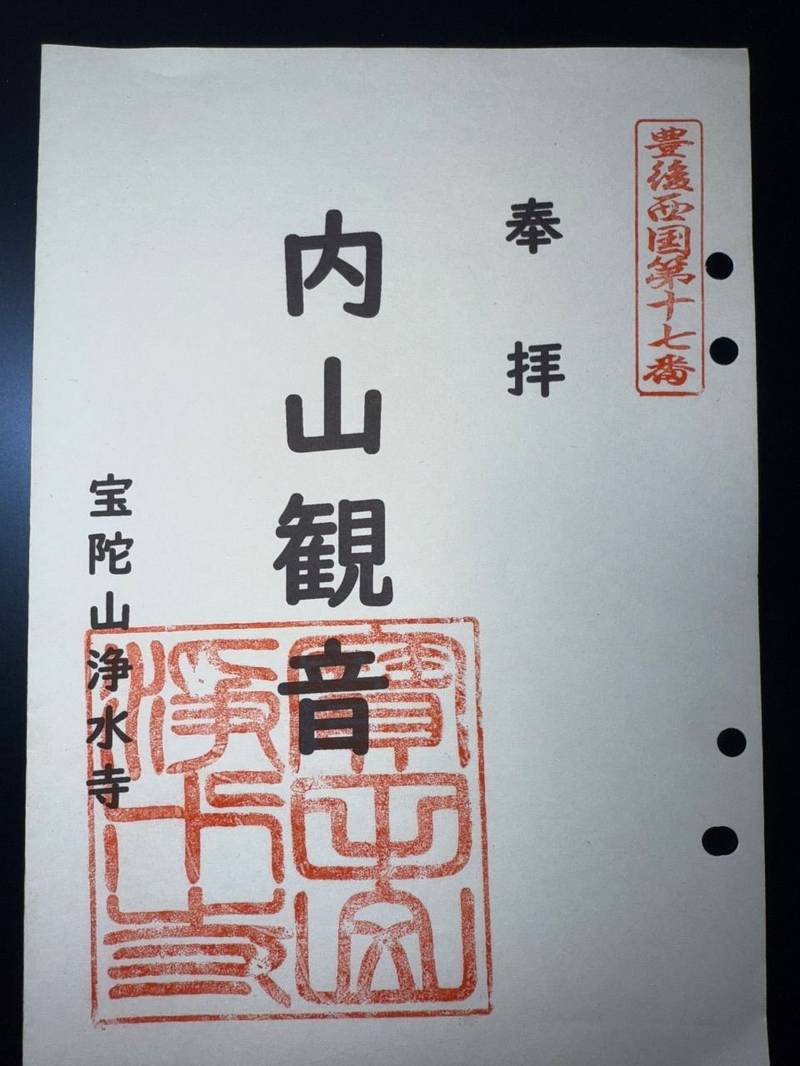 豊後西国第十七番
奉拝
内山観音
宝陀山浄水寺